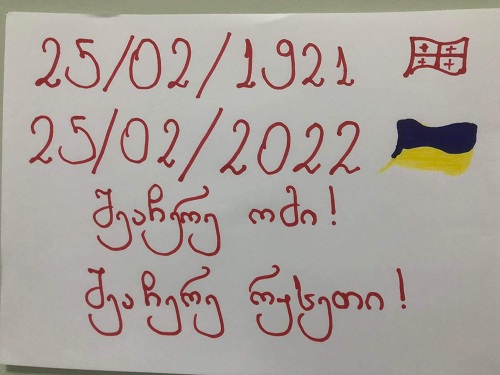 25/02/1921
25/02/2022
შეაჩერე ომი!
შეაჩერე რუსეთი!